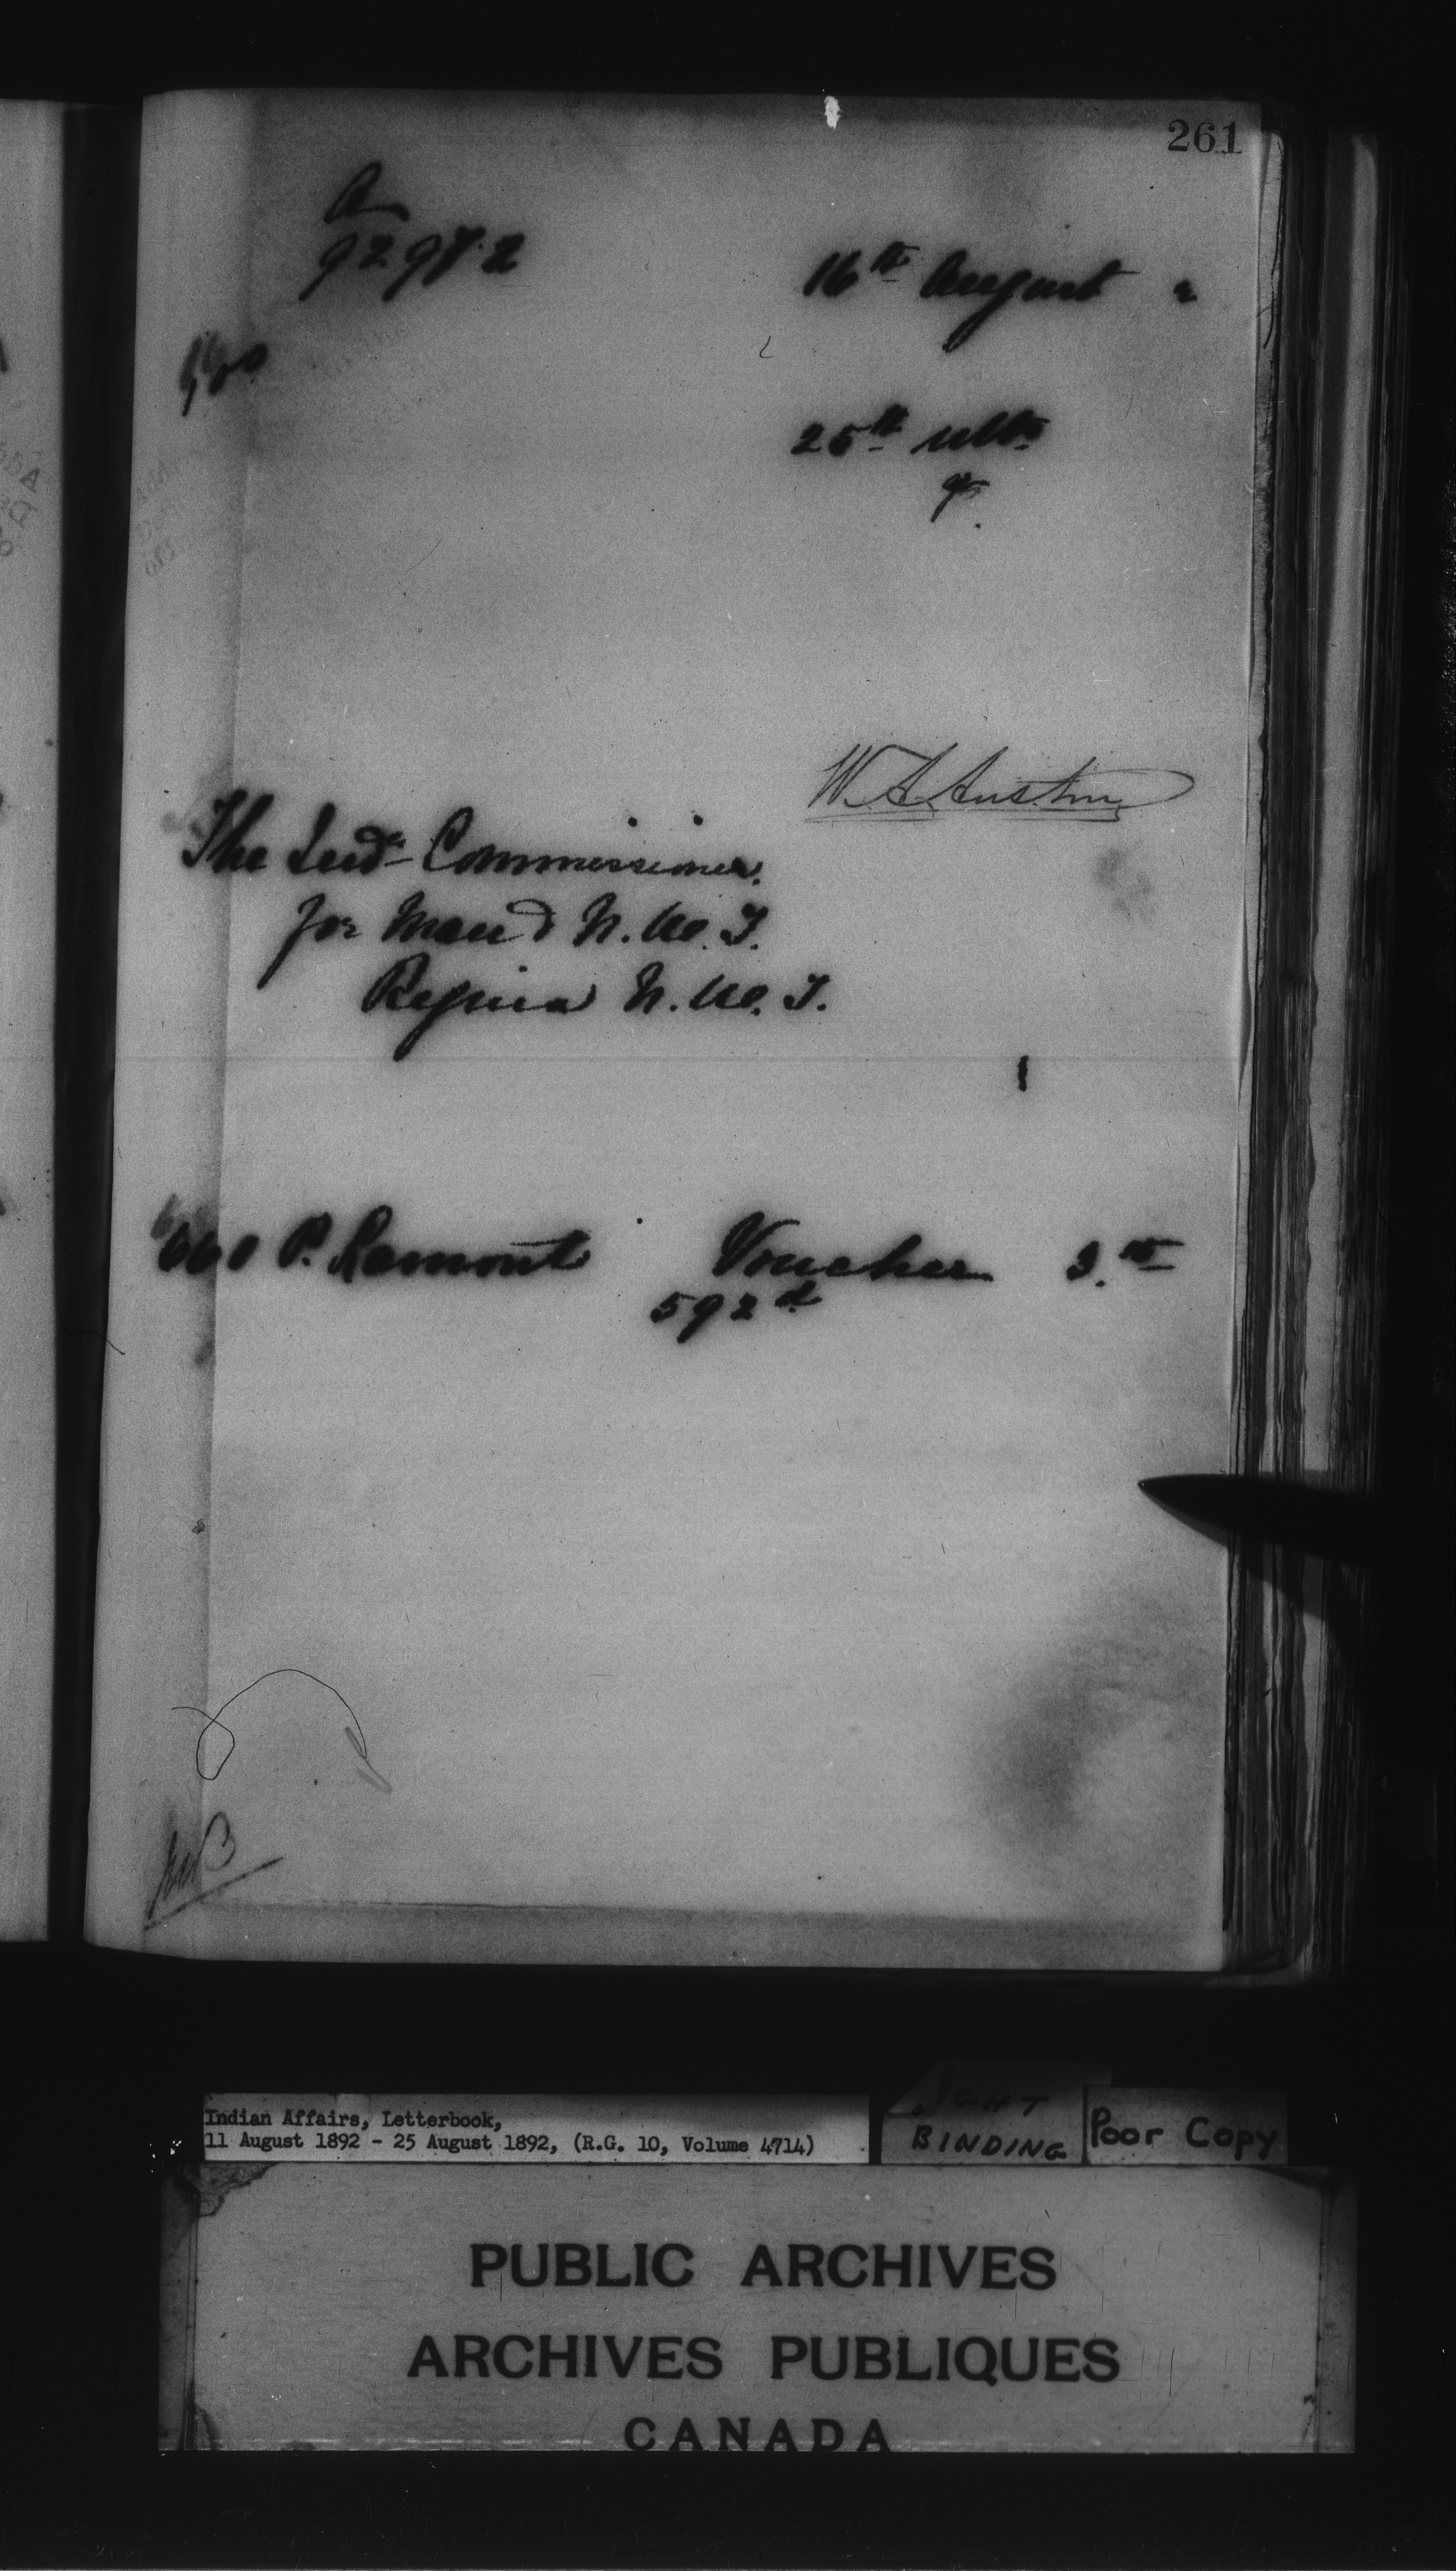 261
92972
16th August
25th ulto
W. A. Austin
The Indn Commissioner
for Man & N.W.T.
Regina N.W.T.
660 P. Lamont Voucher 3.
592 d
Indian Affairs, Letterbook,
11 August 1892 - 25 August 1892, (R.G. 10, Volume 4714)
BINDING
Poor Copy
PUBLIC ARCHIVES
ARCHIVES PUBLIQUES
CANADA